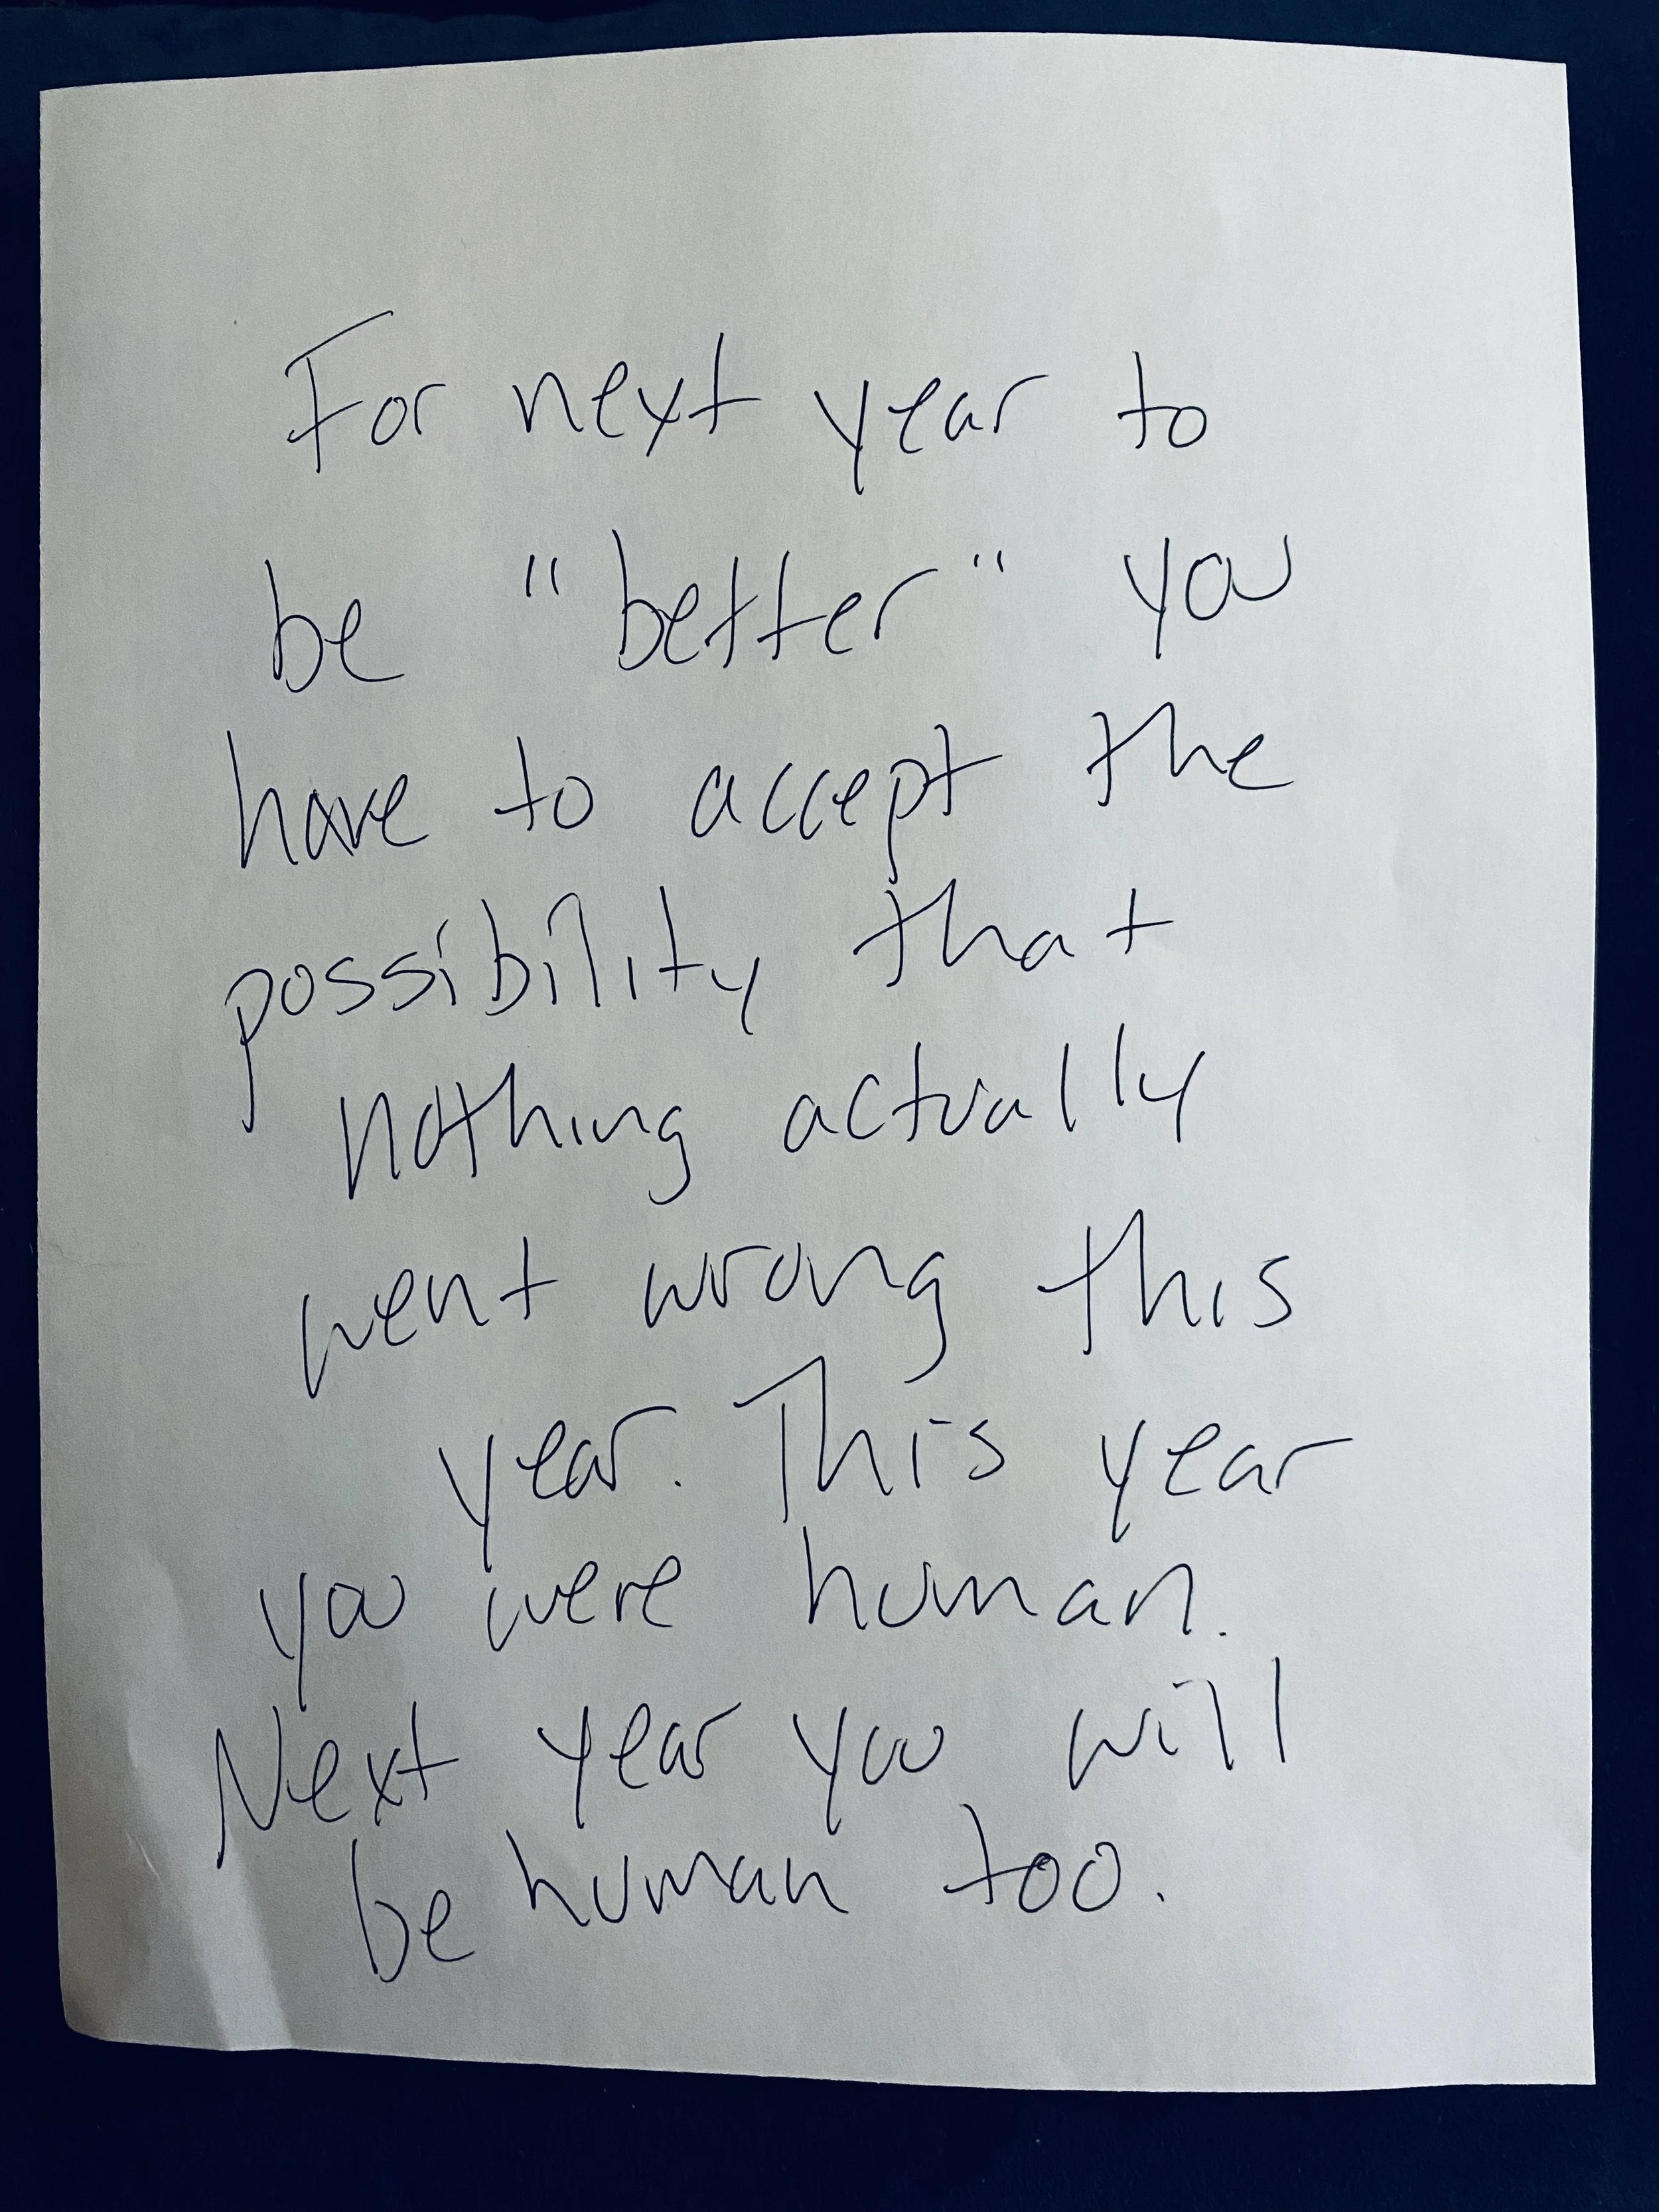 For next year to
be "better" you
have to accept the
possibility that
nothing actually
went wrong this
year. This year
you were human.
Next year you will
be human too.